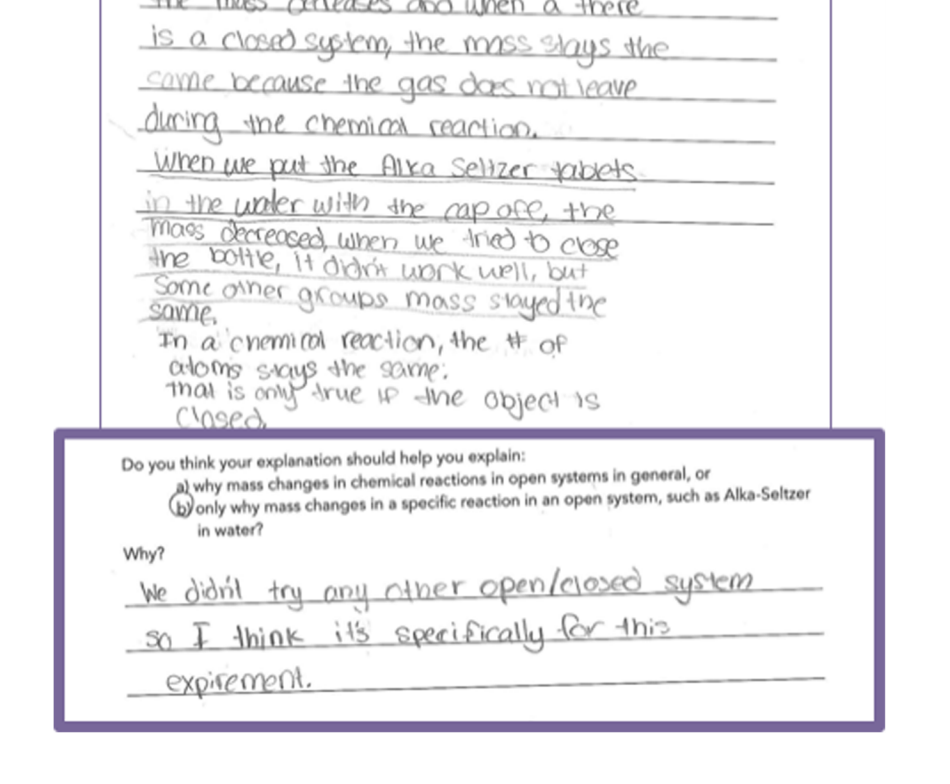 the mass decreases and when a there
is a closed system, the mass stays the
same because the gas does not leave
during the chemical reaction.
When we put the Alka Seltzer tablets
in the water with the cap off, the
mass decreased, when we tried to close
the bottle, it didn't work well, but
Some other groups mass stayed the
same.
In a chemical reaction, the # of
atoms stays the same.
that is only true if the object is
closed.
Do you think your explanation should help you explain:
a) why mass changes in chemical reactions in open systems in general, or
b) only why mass changes in a specific reaction in an open system, such as Alka-Seltzer
in water?
Why?
We didn't try any other open/closed system
so I think it's specifically for this
expirement.